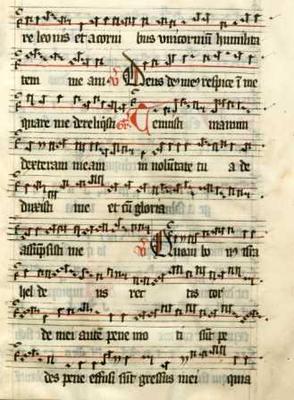 re leonis et a corni bus unicorniũ humilita
tem me am ℣ Deus de⁹ me⁹ respice ĩ me
quare me dereliq̃sti ℟ Tenuisti manum
dexteram meam in volũtate tu a de
duxisti me et cũ gloria
assũpsisti me ℣ Quam bo n⁹ isra
hel de us rec tis cor
de mei autẽ pene mo ti sũt pe
des pene effusi sũt gressus mei quia